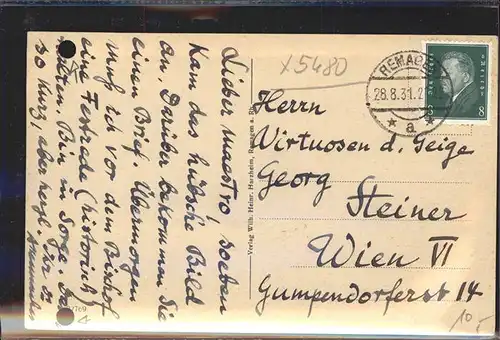 Lieber Maestro! Soeben
kam das hübsche Bild
an. Darüber bekommen Sie
einen Brief. Übermorgen
muß ich vor dem Bischof
eine Festrede (historisch)
halten. Bin in Sorge.
so kurz, aber herzl. Für
Verlag Wilh. Heinr. Hursheim, Remagen a. Rh.
x5480
REMAGEN
28.8.31.
* a
DEUTSCHES REICH
8
Herrn
Virtuosen d. Geige
Georg
Steiner
Wien VI
Gumpendorferst 14
10.-